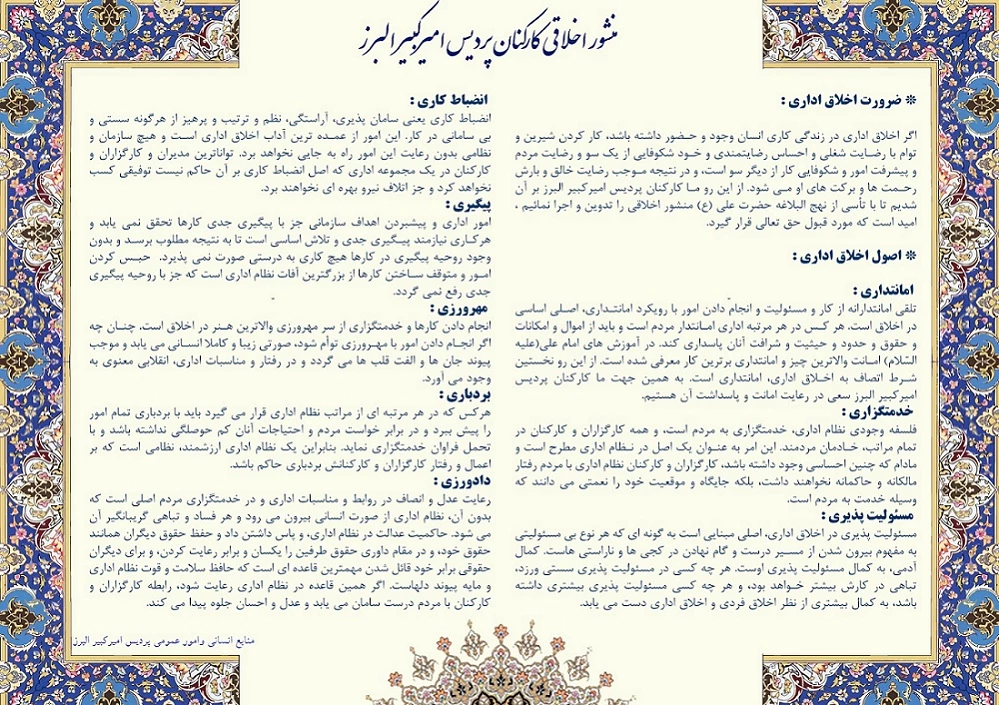 منشور اخلاقی کارکنان پردیس امیرکبیر البرز
❊ ضرورت اخلاق اداری :
اگر اخلاق اداری در زندگی کاری انسان وجود و حضور داشته باشد، کار کردن شیرین و
توام با رضایت شغلی و احساس رضایتمندی و خود شکوفایی از یک سو و رضایت مردم
و پیشرفت امور و شکوفایی کار از دیگر سو است، و در نتیجه موجب رضایت خالق و بارش
رحمت ها و برکت های او می شود. از این رو ما کارکنان پردیس امیرکبیر البرز بر آن
شدیم تا با تأسی از نهج البلاغه حضرت علی (ع) منشور اخلاقی را تدوین و اجرا نمائیم ،
امید است که مورد قبول حق تعالی قرار گیرد.
❊ اصول اخلاق اداری :
امانتداری :
تلقی امانتدارانه از کار و مسئولیت و انجام دادن امور با رویکرد امانتداری، اصلی اساسی
در اخلاق است. هر کس در هر مرتبه اداری امانتدار مردم است و باید از اموال و امکانات
و حقوق و حدود و حیثیت و شرافت آنان پاسداری کند. در آموزش های امام علی(علیه
السّلام) امانت والاترین چیز و امانتداری برترین کار معرفی شده است. از این رو نخستین
شرط اتصاف به اخلاق اداری، امانتداری است. به همین جهت ما کارکنان پردیس
امیرکبیر البرز سعی در رعایت امانت و پاسداشت آن هستیم.
خدمتگزاری :
فلسفه وجودی نظام اداری، خدمتگزاری به مردم است، و همه کارگزاران و کارکنان در
تمام مراتب، خادمان مردمند. این امر به عنوان یک اصل در نظام اداری مطرح است و
مادام که چنین احساسی وجود داشته باشد، کارگزاران و کارکنان نظام اداری با مردم رفتار
مالکانه و حاکمانه نخواهند داشت، بلکه جایگاه و موقعیت خود را نعمتی می دانند که
وسیله خدمت به مردم است.
مسئولیت پذیری :
مسئولیت پذیری در اخلاق اداری، اصلی مبنایی است به گونه ای که هر نوع بی مسئولیتی
به مفهوم بیرون شدن از مسیر درست و گام نهادن در کجی ها و ناراستی هاست. کمال
آدمی، به کمال مسئولیت پذیری اوست. هر چه کسی در مسئولیت پذیری سستی ورزد،
تباهی در کارش بیشتر خواهد بود، و هر چه کسی مسئولیت پذیری بیشتری داشته
باشد، به کمال بیشتری از نظر اخلاق فردی و اخلاق اداری دست می یابد.
انضباط کاری :
انضباط کاری یعنی سامان پذیری، آراستگی، نظم و ترتیب و پرهیز از هرگونه سستی و
بی سامانی در کار. این امور از عمده ترین آداب اخلاق اداری است و هیچ سازمان و
نظامی بدون رعایت این امور راه به جایی نخواهد برد. تواناترین مدیران و کارگزاران و
کارکنان در یک مجموعه اداری که اصل انضباط کاری بر آن حاکم نیست توفیقی کسب
نخواهد کرد و جز اتلاف نیرو بهره ای نخواهند برد.
پیگیری :
امور اداری و پیشبردن اهداف سازمانی جز با پیگیری جدی کارها تحقق نمی یابد و
هرکاری نیازمند پیگیری جدی و تلاش اساسی است تا به نتیجه مطلوب برسد و بدون
وجود روحیه پیگیری در کارها هیچ کاری به درستی صورت نمی پذیرد. حبس کردن
امور و متوقف ساختن کارها از بزرگترین آفات نظام اداری است که جز با روحیه پیگیری
جدی رفع نمی گردد.
مهرورزی :
انجام دادن کارها و خدمتگزاری از سر مهرورزی والاترین هنر در اخلاق است. چنان چه
اگر انجام دادن امور با مهرورزی توأم شود، صورتی زیبا و کاملا انسانی می یابد و موجب
پیوند جان ها و الفت قلب ها می گردد و در رفتار و مناسبات اداری، انقلابی معنوی به
وجود می آورد.
بردباری :
هرکس که در هر مرتبه ای از مراتب نظام اداری قرار می گیرد باید با بردباری تمام امور
را پیش ببرد و در برابر خواست مردم و احتیاجات آنان کم حوصلگی نداشته باشد و با
تحمل فراوان خدمتگزاری نماید. بنابراین یک نظام اداری ارزشمند، نظامی است که بر
اعمال و رفتار کارگزاران و کارکنانش بردباری حاکم باشد.
دادورزی :
رعایت عدل و انصاف در روابط و مناسبات اداری و در خدمتگزاری مردم اصلی است که
بدون آن، نظام اداری از صورت انسانی بیرون می رود و هر فساد و تباهی گریبانگیر آن
می شود. حاکمیت عدالت در نظام اداری، و پاس داشتن داد و حفظ حقوق دیگران همانند
حقوق خود، و در مقام داوری حقوق طرفین را یکسان و برابر رعایت کردن، و برای دیگران
حقوقی برابر خود قائل شدن مهمترین قاعده ای است که حافظ سلامت و قوت نظام اداری
و مایه پیوند دلهاست. اگر همین قاعده در نظام اداری رعایت شود، رابطه کارگزاران و
کارکنان با مردم درست سامان می یابد و عدل و احسان جلوه پیدا می کند.
منابع انسانی وامور عمومی پردیس امیرکبیر البرز